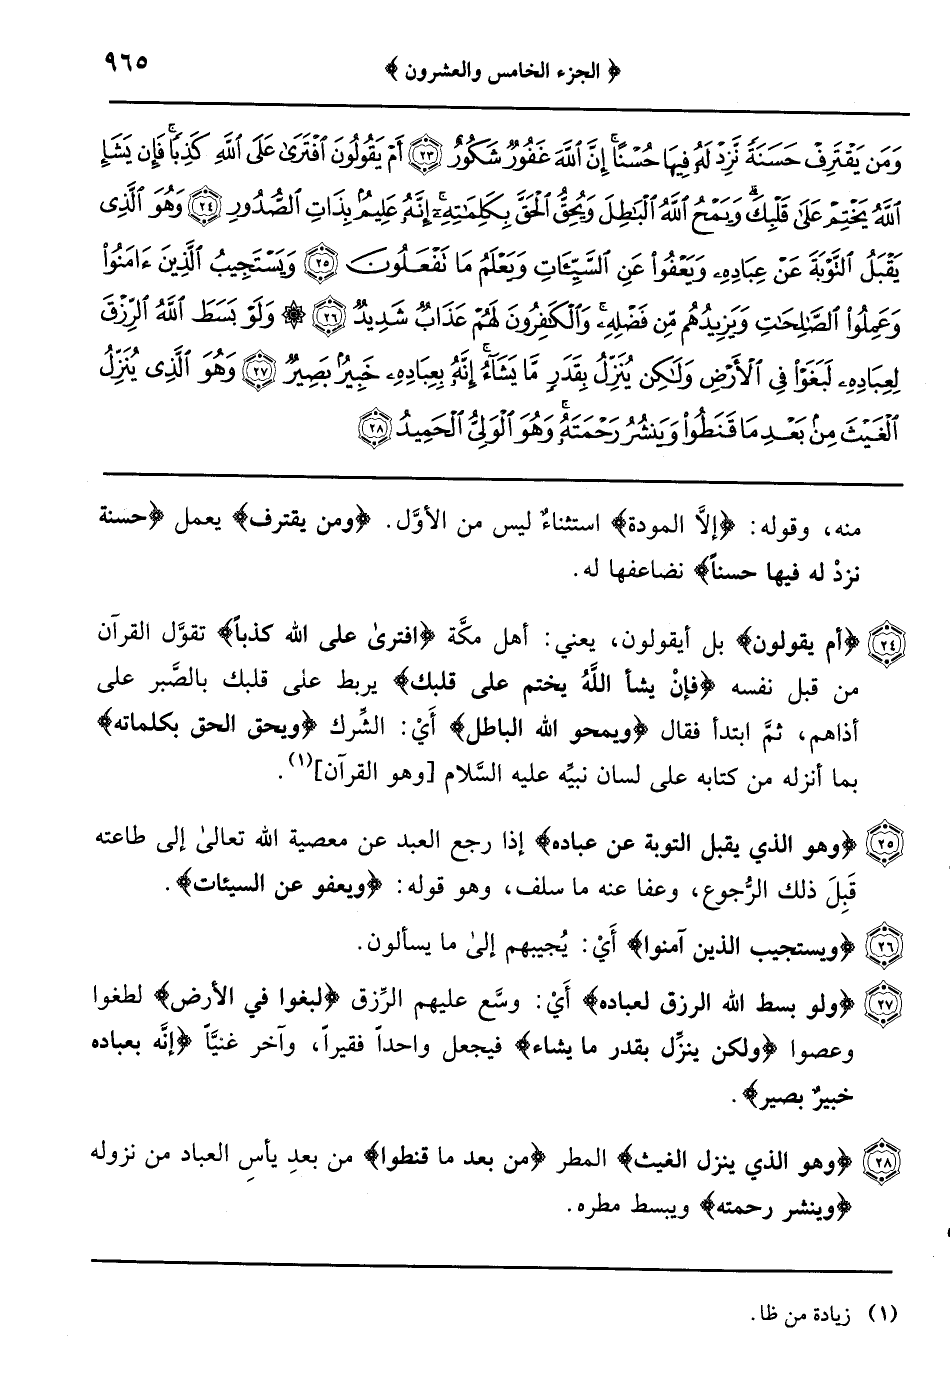 ﴿ الجزء الخامس والعشرون ﴾ ٩٦٥
وَمَن يَقْتَرِفْ حَسَنَةً نَّزِدْ لَهُۥ فِيهَا حُسْنًا ۚ إِنَّ ٱللَّهَ غَفُورٌ شَكُورٌ ٢٣ أَمْ يَقُولُونَ ٱفْتَرَىٰ عَلَى ٱللَّهِ كَذِبًا ۖ فَإِن يَشَإِ
ٱللَّهُ يَخْتِمْ عَلَىٰ قَلْبِكَ ۗ وَيَمْحُ ٱللَّهُ ٱلْبَـٰطِلَ وَيُحِقُّ ٱلْحَقَّ بِكَلِمَـٰتِهِۦٓ ۚ إِنَّهُۥ عَلِيمٌۢ بِذَاتِ ٱلصُّدُورِ ٢٤ وَهُوَ ٱلَّذِى
يَقْبَلُ ٱلتَّوْبَةَ عَنْ عِبَادِهِۦ وَيَعْفُوا۟ عَنِ ٱلسَّيِّـَٔاتِ وَيَعْلَمُ مَا تَفْعَلُونَ ٢٥ وَيَسْتَجِيبُ ٱلَّذِينَ ءَامَنُوا۟
وَعَمِلُوا۟ ٱلصَّـٰلِحَـٰتِ وَيَزِيدُهُم مِّن فَضْلِهِۦ ۚ وَٱلْكَـٰفِرُونَ لَهُمْ عَذَابٌ شَدِيدٌ ٢٦ ۞ وَلَوْ بَسَطَ ٱللَّهُ ٱلرِّزْقَ
لِعِبَادِهِۦ لَبَغَوْا۟ فِى ٱلْأَرْضِ وَلَـٰكِن يُنَزِّلُ بِقَدَرٍ مَّا يَشَآءُ ۚ إِنَّهُۥ بِعِبَادِهِۦ خَبِيرٌۢ بَصِيرٌ ٢٧ وَهُوَ ٱلَّذِى يُنَزِّلُ
ٱلْغَيْثَ مِنۢ بَعْدِ مَا قَنَطُوا۟ وَيَنشُرُ رَحْمَتَهُۥ ۚ وَهُوَ ٱلْوَلِىُّ ٱلْحَمِيدُ ٢٨
منه، وقوله: ﴿إلاَّ المودة﴾ استثناءٌ ليس من الأوَّل. ﴿ومن يقترف﴾ يعمل ﴿حسنة
نزدْ له فيها حسناً﴾ نضاعفها له.
٢٤ ﴿أم يقولون﴾ بل أيقولون، يعني: أهل مكَّة ﴿افترىٰ على الله كذباً﴾ تقوَّل القرآن
من قبل نفسه ﴿فإنْ يشأ اللَّهُ يختم على قلبك﴾ يربط على قلبك بالصَّبر على
أذاهم، ثمَّ ابتدأ فقال ﴿ويمحو الله الباطل﴾ أَيْ: الشِّرك ﴿ويحق الحق بكلماته﴾
بما أنزله من كتابه على لسان نبيِّه عليه السَّلام [وهو القرآن](١).
٢٥ ﴿وهو الذي يقبل التوبة عن عباده﴾ إذا رجع العبد عن معصية الله تعالىٰ إلى طاعته
قَبِلَ ذلك الرُّجوع، وعفا عنه ما سلف، وهو قوله: ﴿ويعفو عن السيئات﴾.
٢٦ ﴿ويستجيب الذين آمنوا﴾ أَيْ: يُجيبهم إلىٰ ما يسألون.
٢٧ ﴿ولو بسط الله الرزق لعباده﴾ أَيْ: وسَّع عليهم الرِّزق ﴿لبغوا في الأرض﴾ لطغوا
وعصوا ﴿ولكن ينزِّل بقدر ما يشاء﴾ فيجعل واحداً فقيراً، وآخر غنيَّاً ﴿إنَّه بعباده
خبيرٌ بصير﴾.
٢٨ ﴿وهو الذي ينزل الغيث﴾ المطر ﴿من بعد ما قنطوا﴾ من بعدِ يأسِ العباد من نزوله
﴿وينشر رحمته﴾ ويبسط مطره.
(١) زيادة من ظا.